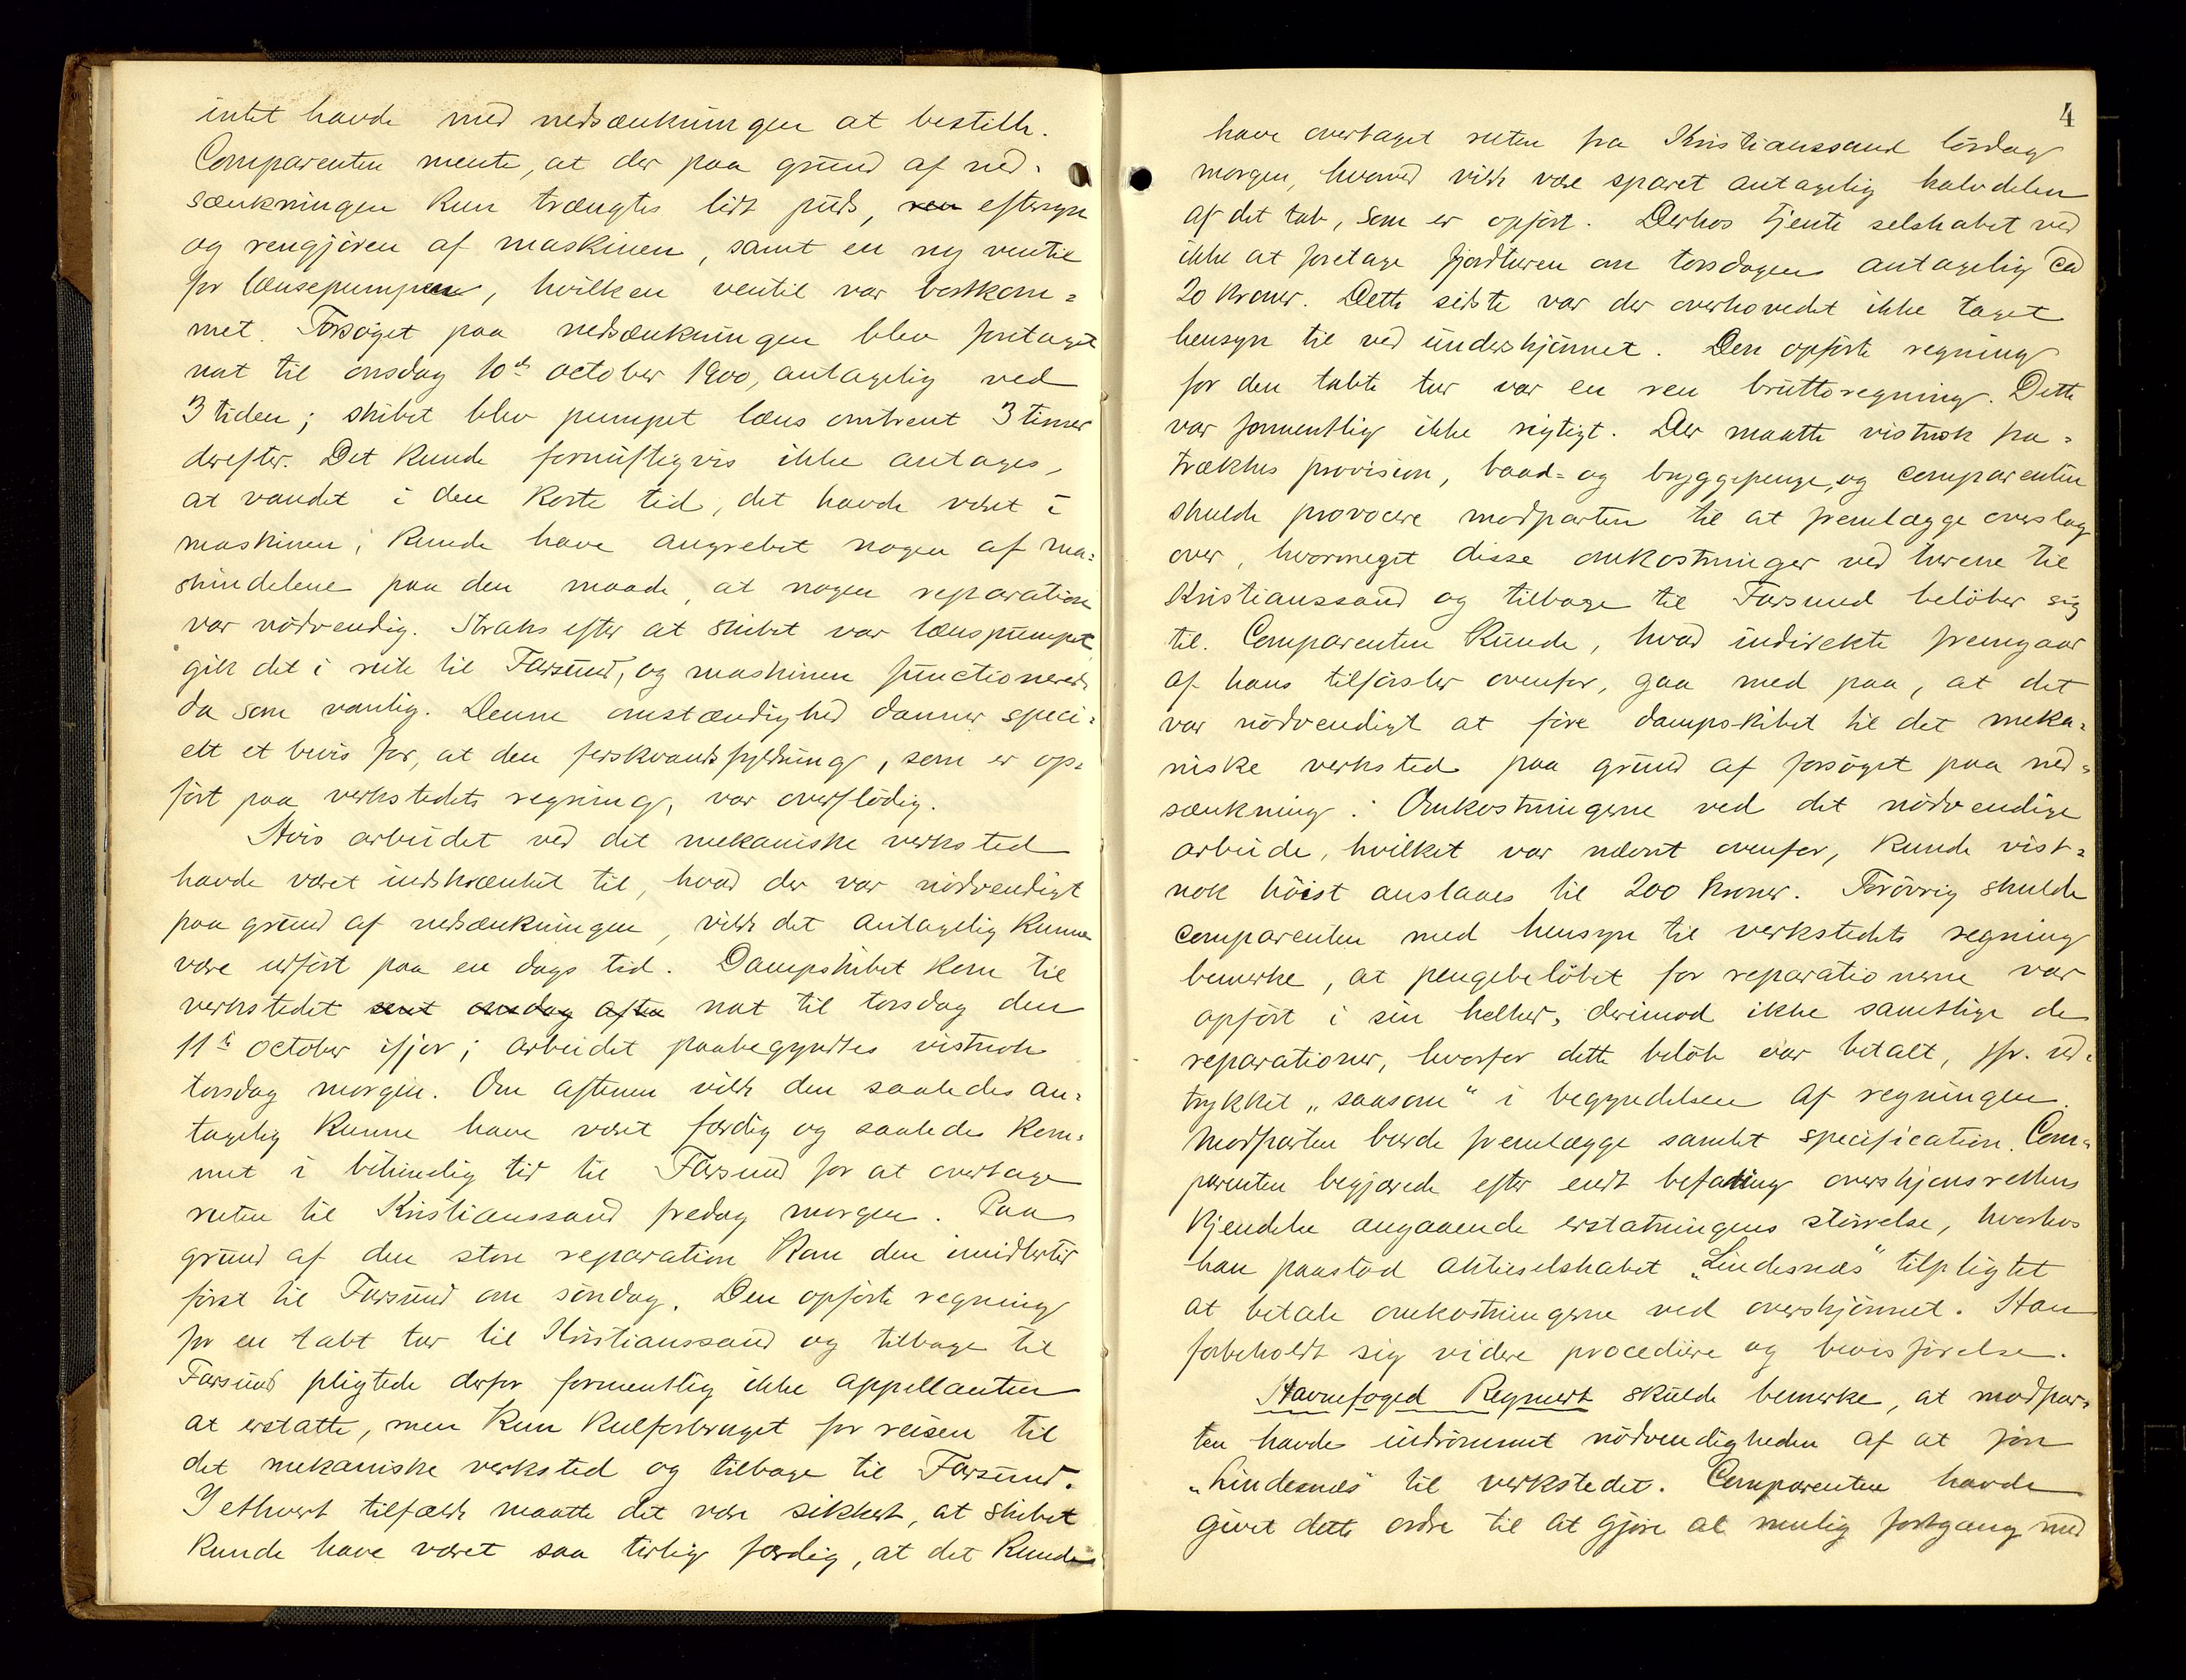 intet havde med nedsænkningen at bestille.
Comparenten mente, at der paa grund af ned-
sænkningen kun trængtes lidt puds, ren eftersyn
og rengjøren af maskinen, samt en ny ventil
for lænsepumpen, hvilken ventil var bortkom=
met. Forsøget paa nedsænkningen blev foretaget
nat til onsdag 10de october 1900, antagelig ved
3 tiden; skibet blev pumpet læns omtrent 3 timer
derefter. Det kunde fornuftigvis ikke antages,
at vandet i den korte tid, det havde været i
maskinen, kunde have angrebet nogen af ma=
skindelene paa den maade, at nogen reparation
var nødvendig. Straks efter at skibet var lænspumpet
gik det i rute til Farsund, og maskinen functionerede
da som vanlig. Denne omstændighed danner speci=
elt et bevis for, at den ferskvandsfyldning, som er op=
ført paa verkstedets regning, var overflødig.
Hvis arbeidet ved det mekaniske verksted
havde været indskrænket til, hvad der var nødvendigt
paa grund af nedsænkningen, vilde det antagelig kunne
være udført paa en dags tid. Dampskibet kom til
verkstedet sent onsdag aften nat til torsdag den
11te october ifjor; arbeidet paabegyndtes vistnok
torsdag morgen. Om aftenen vilde den saaledes an=
tagelig kunne have været færdig og saaledes kom=
met i betimelig tid til Farsund for at overtage
ruten til Kristianssand fredag morgen. Paa
grund af den store reparation kom den imidlertid
først til Farsund om søndag. Den opførte regning
for en tabt tur til Kristianssand og tilbage til
Farsund pligtede derfor formentlig ikke appellanten
at erstatte, men kun kulforbruget for reisen til
det mekaniske verksted og tilbage til Farsund.
I ethvert tilfælde maatte det være sikkert, at skibet
kunde have været saa tidlig færdig, at det kunde
4
have overtaget ruten fra Kristianssand lørdag
morgen, hvorved vilde være sparet antagelig halvdelen
af det tab, som er opført. Derhos tjente selskabet ved
ikke at foretage fjordturen om torsdagen antagelig ca
20 kroner. Dette sidste var der overhovedet ikke taget
hensyn til ved underskjønnet. Den opførte regning
for den tabte tur var en ren bruttoregning. Dette
var formentlig ikke rigtigt. Der maatte vistnok fra=
trækkes provision, baad= og bryggepenge, og comparenten
skulde provocere modparten til at fremlægge overslag
over, hvormeget disse omkostninger ved turene til
Kristianssand og tilbage til Farsund beløber sig
til. Comparenten kunde, hvad indirekte fremgaar
af hans tilførsler ovenfor, gaa med paa, at det
var nødvendigt at føre dampskibet til det meka=
niske verksted paa grund af forsøget paa ned=
sænkning. Omkostningerne ved det nødvendige
arbeide, hvilket var nævnt ovenfor, kunde vist=
nok høist anslaaes til 200 kroner. Forøvrig skulde
comparenten med hensyn til verkstedets regning
bemerke, at pengebeløbet for reparationerne var
opført i sin helhed, derimod ikke samtlige de
reparationer, hvorfor dette beløb var betalt, jfr. ud=
trykket „saasom" i begyndelsen af regningen.
Modparten burde fremlægge samlet specification. Com=
parenten begjærede efter endt befaring overskjønsrettens
kjendelse angaaende erstatningens størrelse, hvorhos
han paastod aktieselskabet „Lindesnæs" tilpligtet
at betale omkostningerne ved overskjønnet. Han
forbeholdt sig videre procedure og bevisførelse.
Havnefoged Regnert skulde bemerke, at modpar=
ten havde indrømmet nødvendigheden af at føre
„Lindesnæs" til verkstedet. Comparenten havde
givet dette ordre til at gjøre al mulig fortgang med